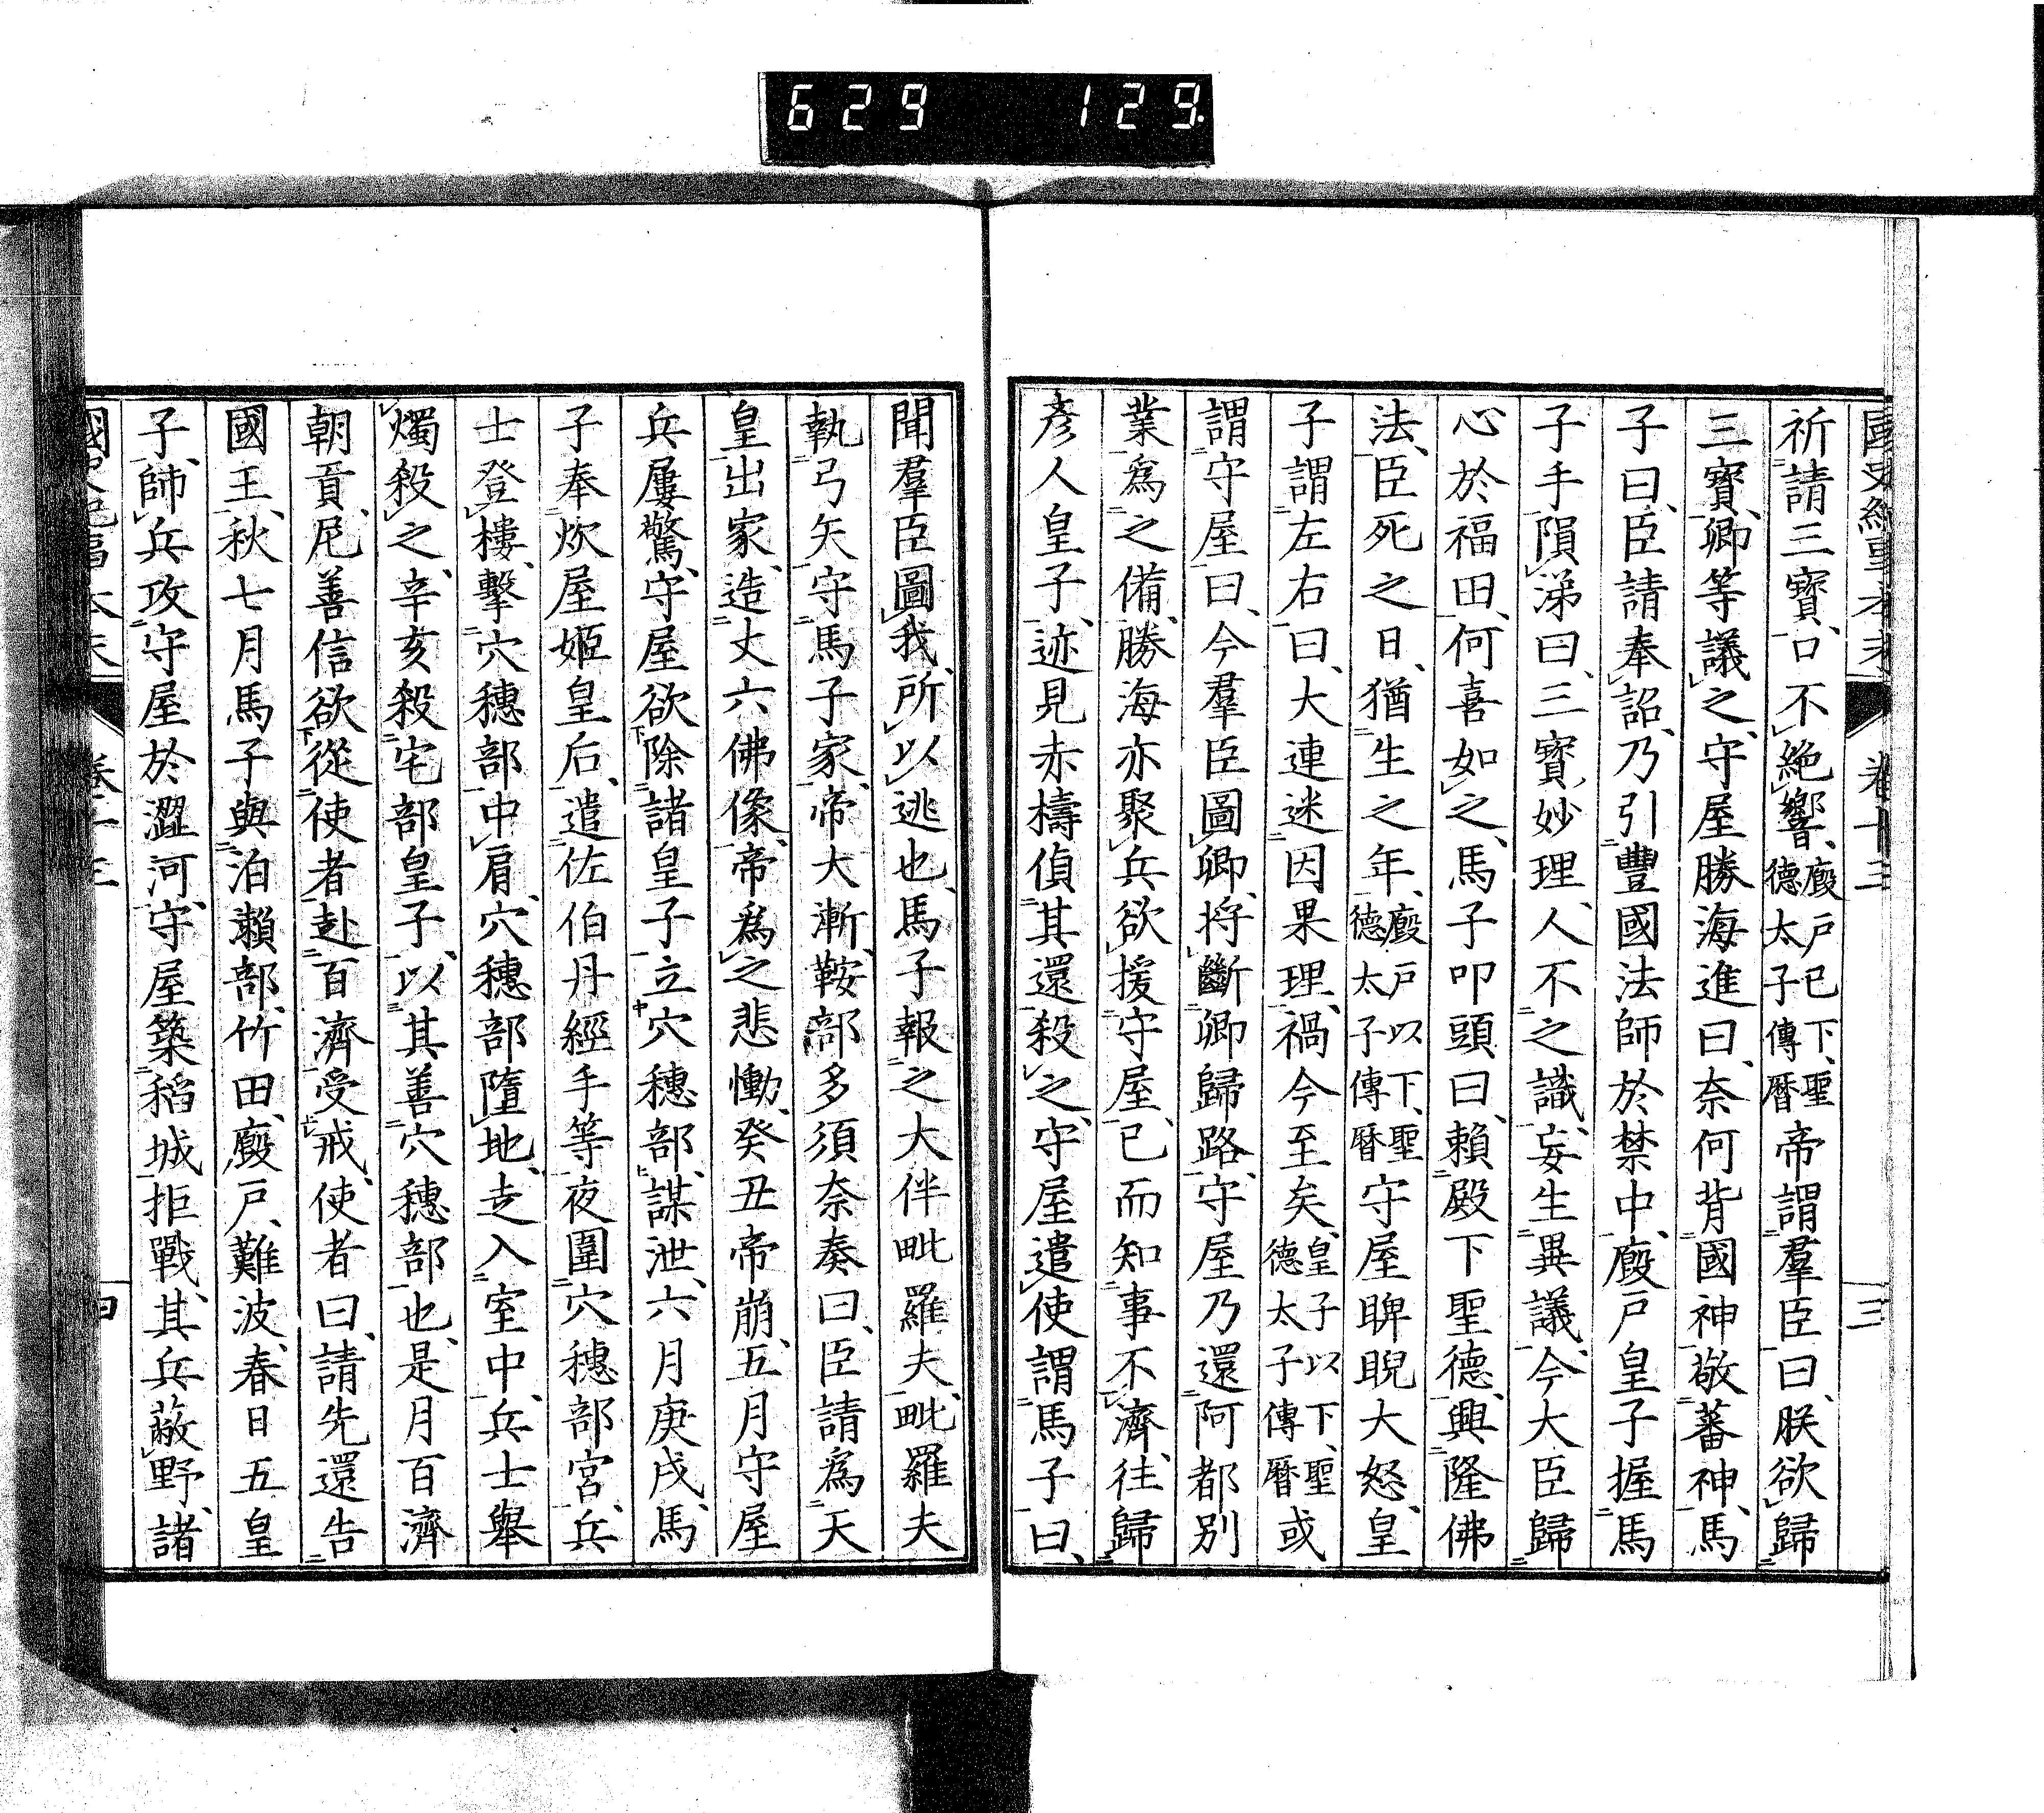 629 129.
國史紀事本末 卷十三 三
祈請三寶、口不絶響、廄戸已下、聖德太子傳暦帝謂羣臣曰、朕欲歸
三寶、卿等議之、守屋勝海進曰、奈何背國神敬蕃神、馬
子曰、臣請奉詔、乃引豐國法師於禁中、廄戸皇子握馬
子手隕涕曰、三寶妙理、人不之識、妄生異議、今大臣歸
心於福田、何喜如之、馬子叩頭曰、賴殿下聖德、興隆佛
法、臣死之日、猶生之年、廄戸以下、聖德太子傳暦守屋睥睨大怒、皇
子謂左右曰、大連迷因果理、禍今至矣、皇子以下、聖德太子傳暦或
謂守屋曰、今羣臣圖卿、将斷卿歸路、守屋乃還阿都別
業爲之備、勝海亦聚兵欲援守屋、已而知事不濟、往歸
彦人皇子、迹見赤檮偵其還殺之、守屋遣使謂馬子曰、
聞羣臣圖我、所以逃也、馬子報之大伴毗羅夫、毗羅夫
執弓矢守馬子家、帝大漸、鞍部多須奈奏曰、臣請爲天
皇出家、造丈六佛像、帝爲之悲慟、癸丑帝崩、五月守屋
兵屢驚、守屋欲除諸皇子立穴穗部、謀泄、六月庚戌、馬
子奉炊屋姬皇后、遣佐伯丹經手等夜圍穴穗部宮、兵
士登樓、擊穴穗部中肩、穴穗部墮地、走入室中、兵士舉
燭殺之、辛亥殺宅部皇子、以其善穴穗部也、是月百濟
朝貢、尼善信欲從使者赴百濟受戒、使者曰、請先還告
國王、秋七月馬子與泊瀨部、竹田、廄戸、難波、春日五皇
子、帥兵攻守屋於澀河、守屋築稻城拒戰、其兵蔽野、諸
國史紀事本末 卷十三 四